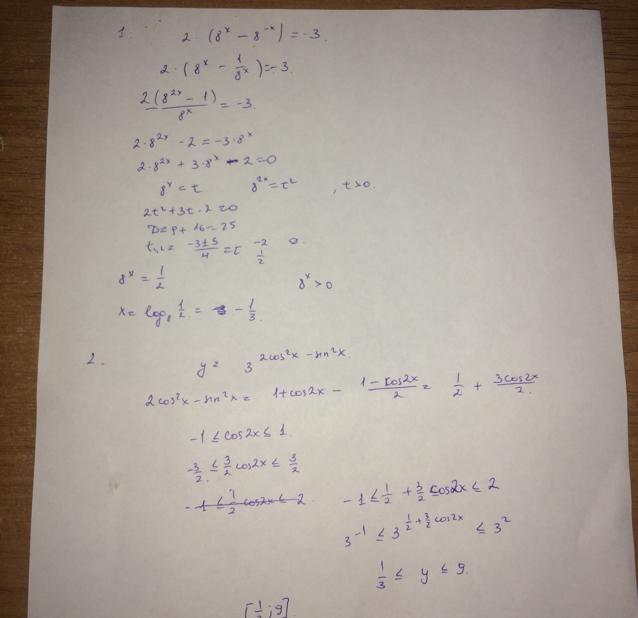 1. 2·(8ˣ − 8⁻ˣ) = −3.
2·(8ˣ − 1/8ˣ) = −3.
2(8²ˣ − 1)/8ˣ = −3.
2·8²ˣ − 2 = −3·8ˣ
2·8²ˣ + 3·8ˣ − 2 = 0
8ˣ = t 8²ˣ = t² , t>0.
2t² + 3t − 2 = 0
D = 9 + 16 = 25
t₁,₂ = (−3 ± 5)/4 = [ −2 1/2
8ˣ = 1/2 8ˣ > 0
x = log₈ 1/2 = −1/3.
2. y = 3^(2cos²x − sin²x).
2cos²x − sin²x = 1 + cos2x − (1 − cos2x)/2 = 1/2 + 3cos2x/2.
−1 ≤ cos2x ≤ 1.
−3/2 ≤ 3/2 cos2x ≤ 3/2
−1 ≤ 1/2 cos2x ≤ 2 −1 ≤ 1/2 + 3/2 cos2x ≤ 2
3⁻¹ ≤ 3^(1/2 + 3/2 cos2x) ≤ 3²
1/3 ≤ y ≤ 9.
[1/3; 9]